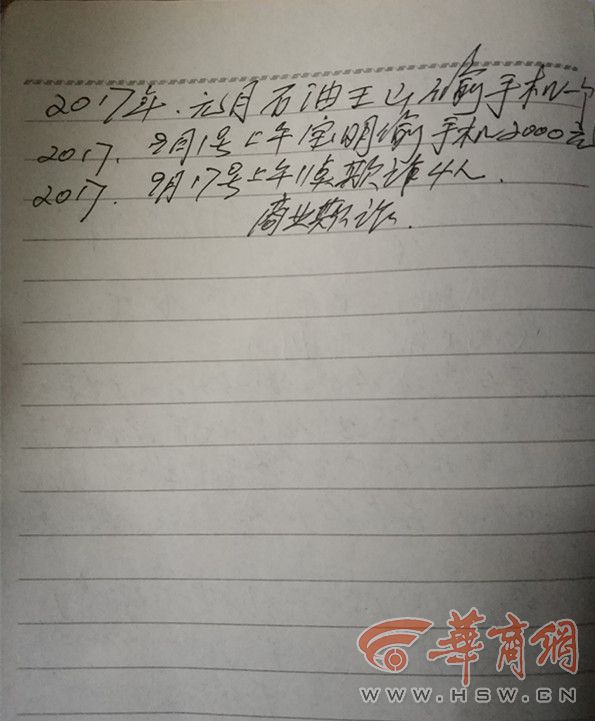 2017年.元月石油王山偷手机一个
2017. 9月1号上午宝明偷手机2000元
2017. 9月17号上午11点欺诈4人.
商业欺诈.
華商網
WWW.HSW.CN